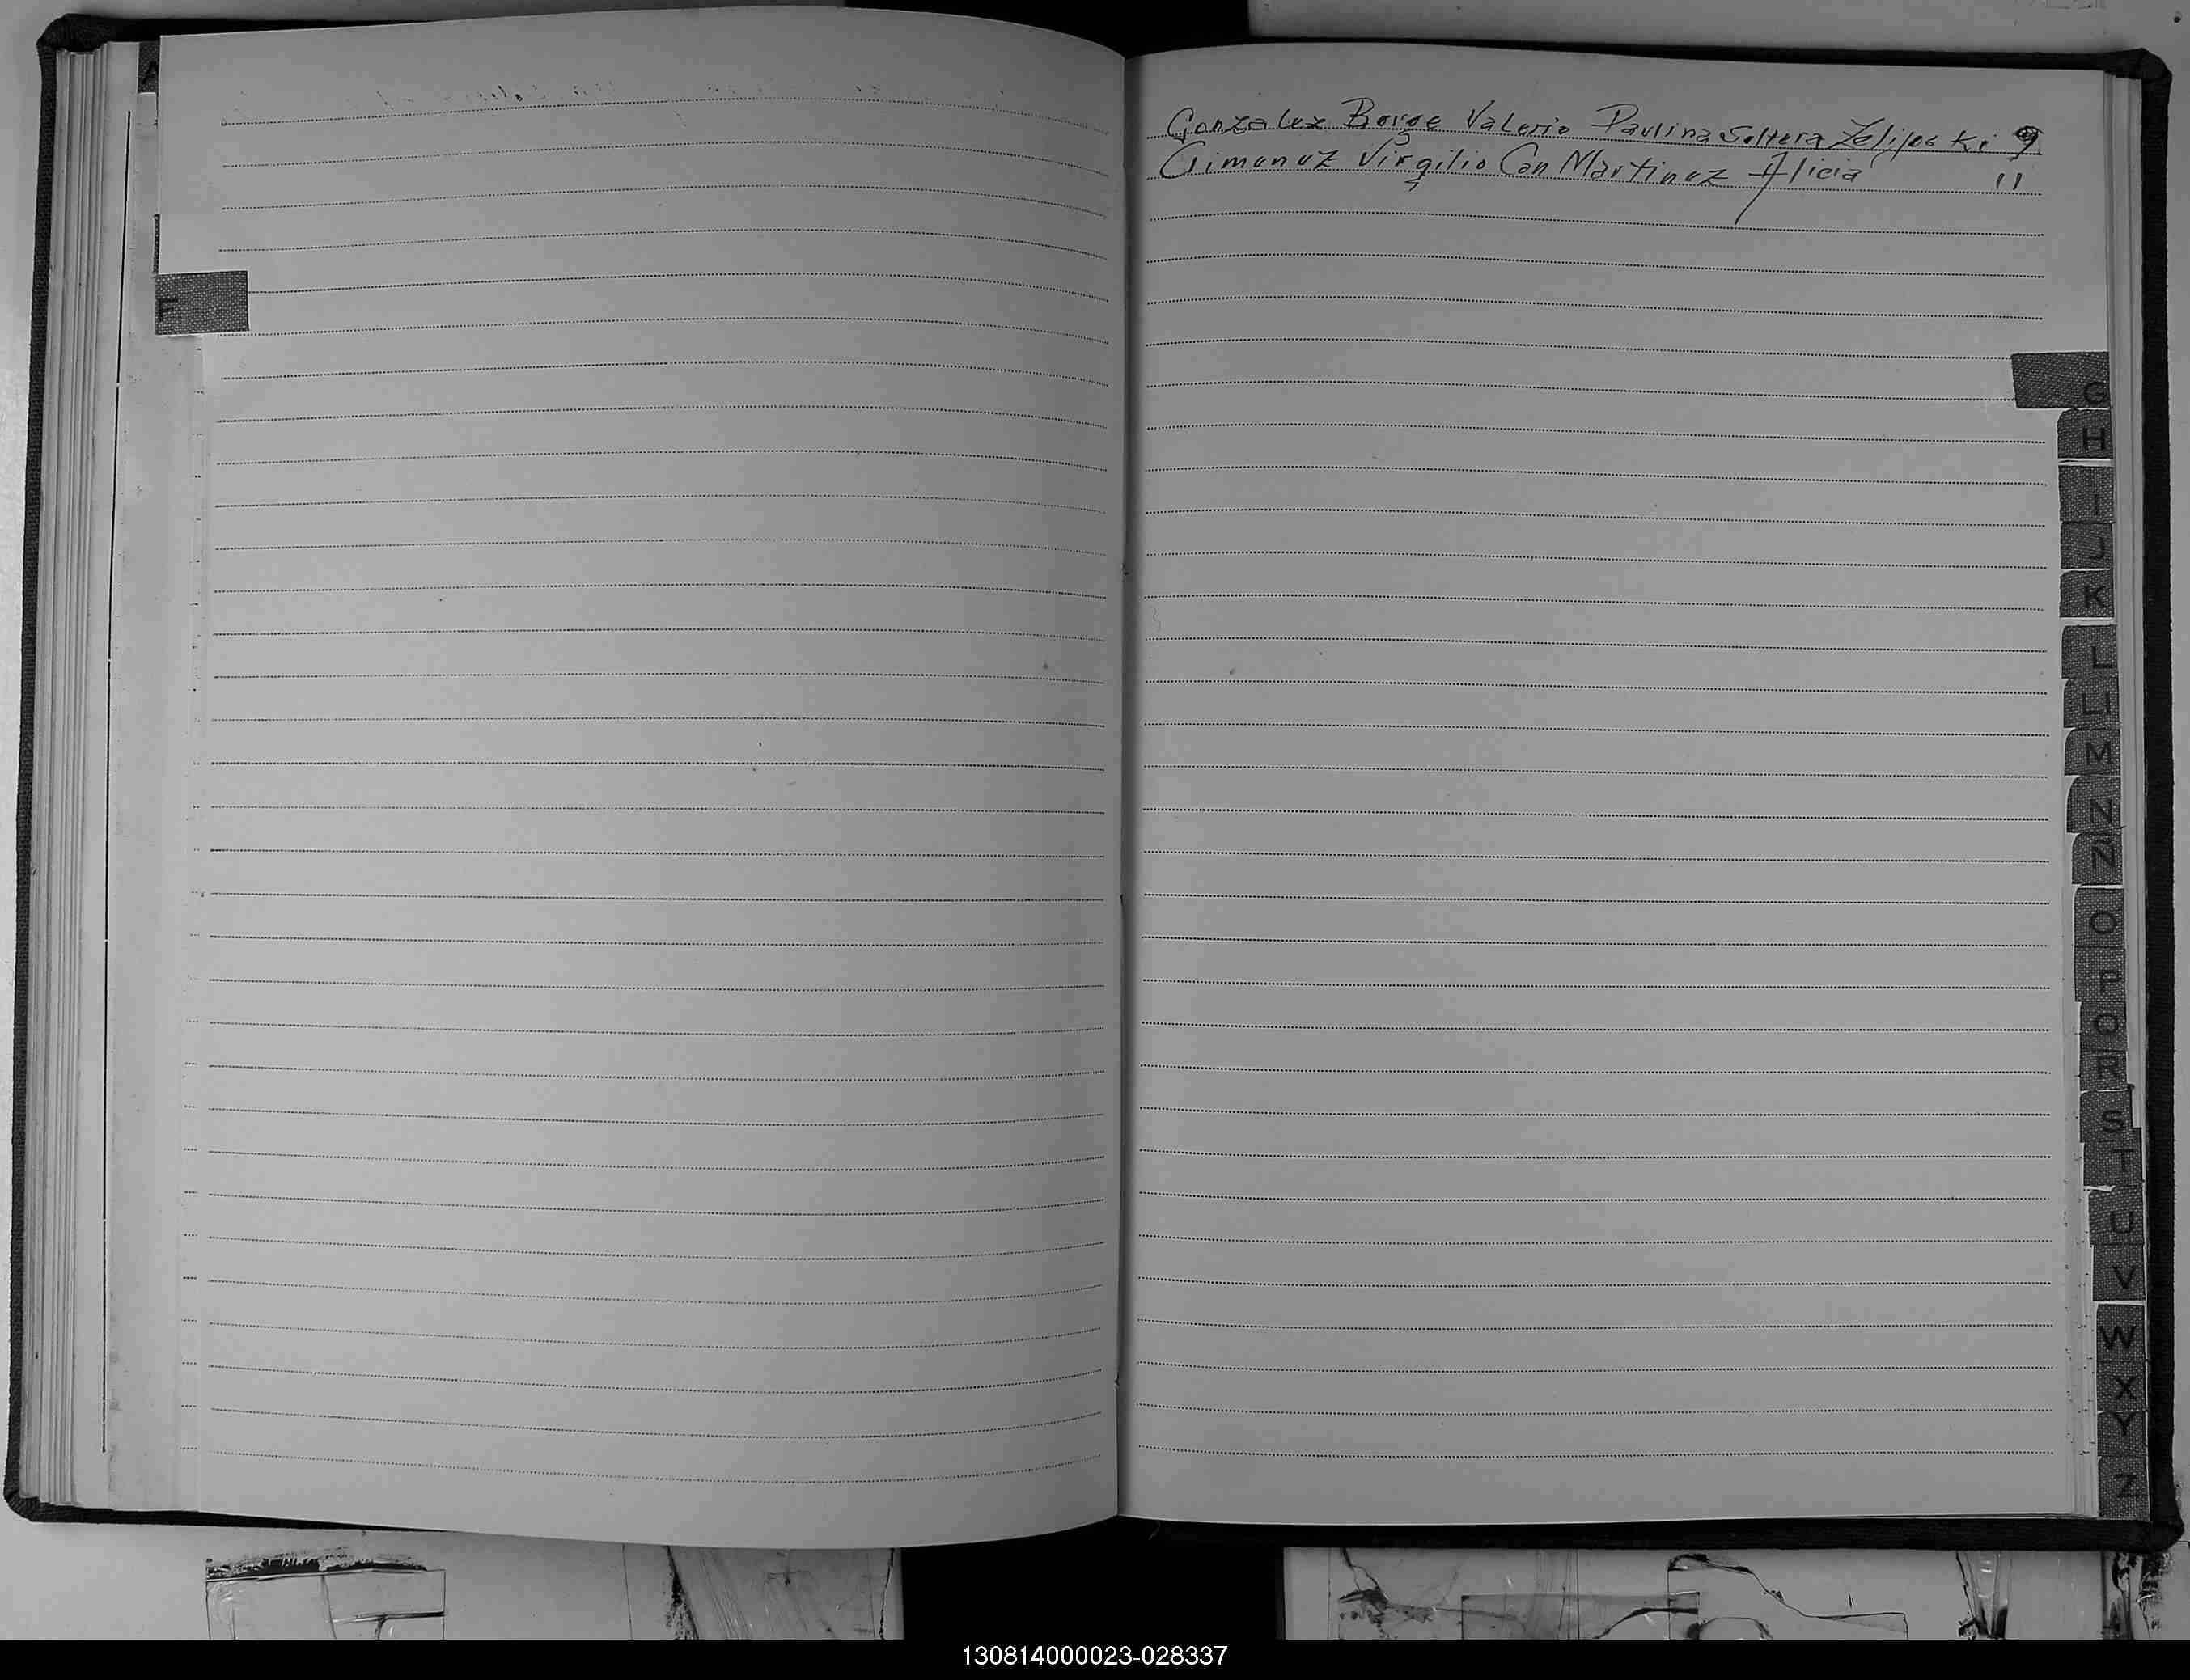 A
F
Gonzalez Borge Valerio Paulina Soltera 9
Gimenez Virgilio Con Martinez Alicia 11
G
H
I
J
K
L
Ll
M
N
Ñ
O
P
Q
R
S
T
U
V
W
X
Y
Z
130814000023-028337